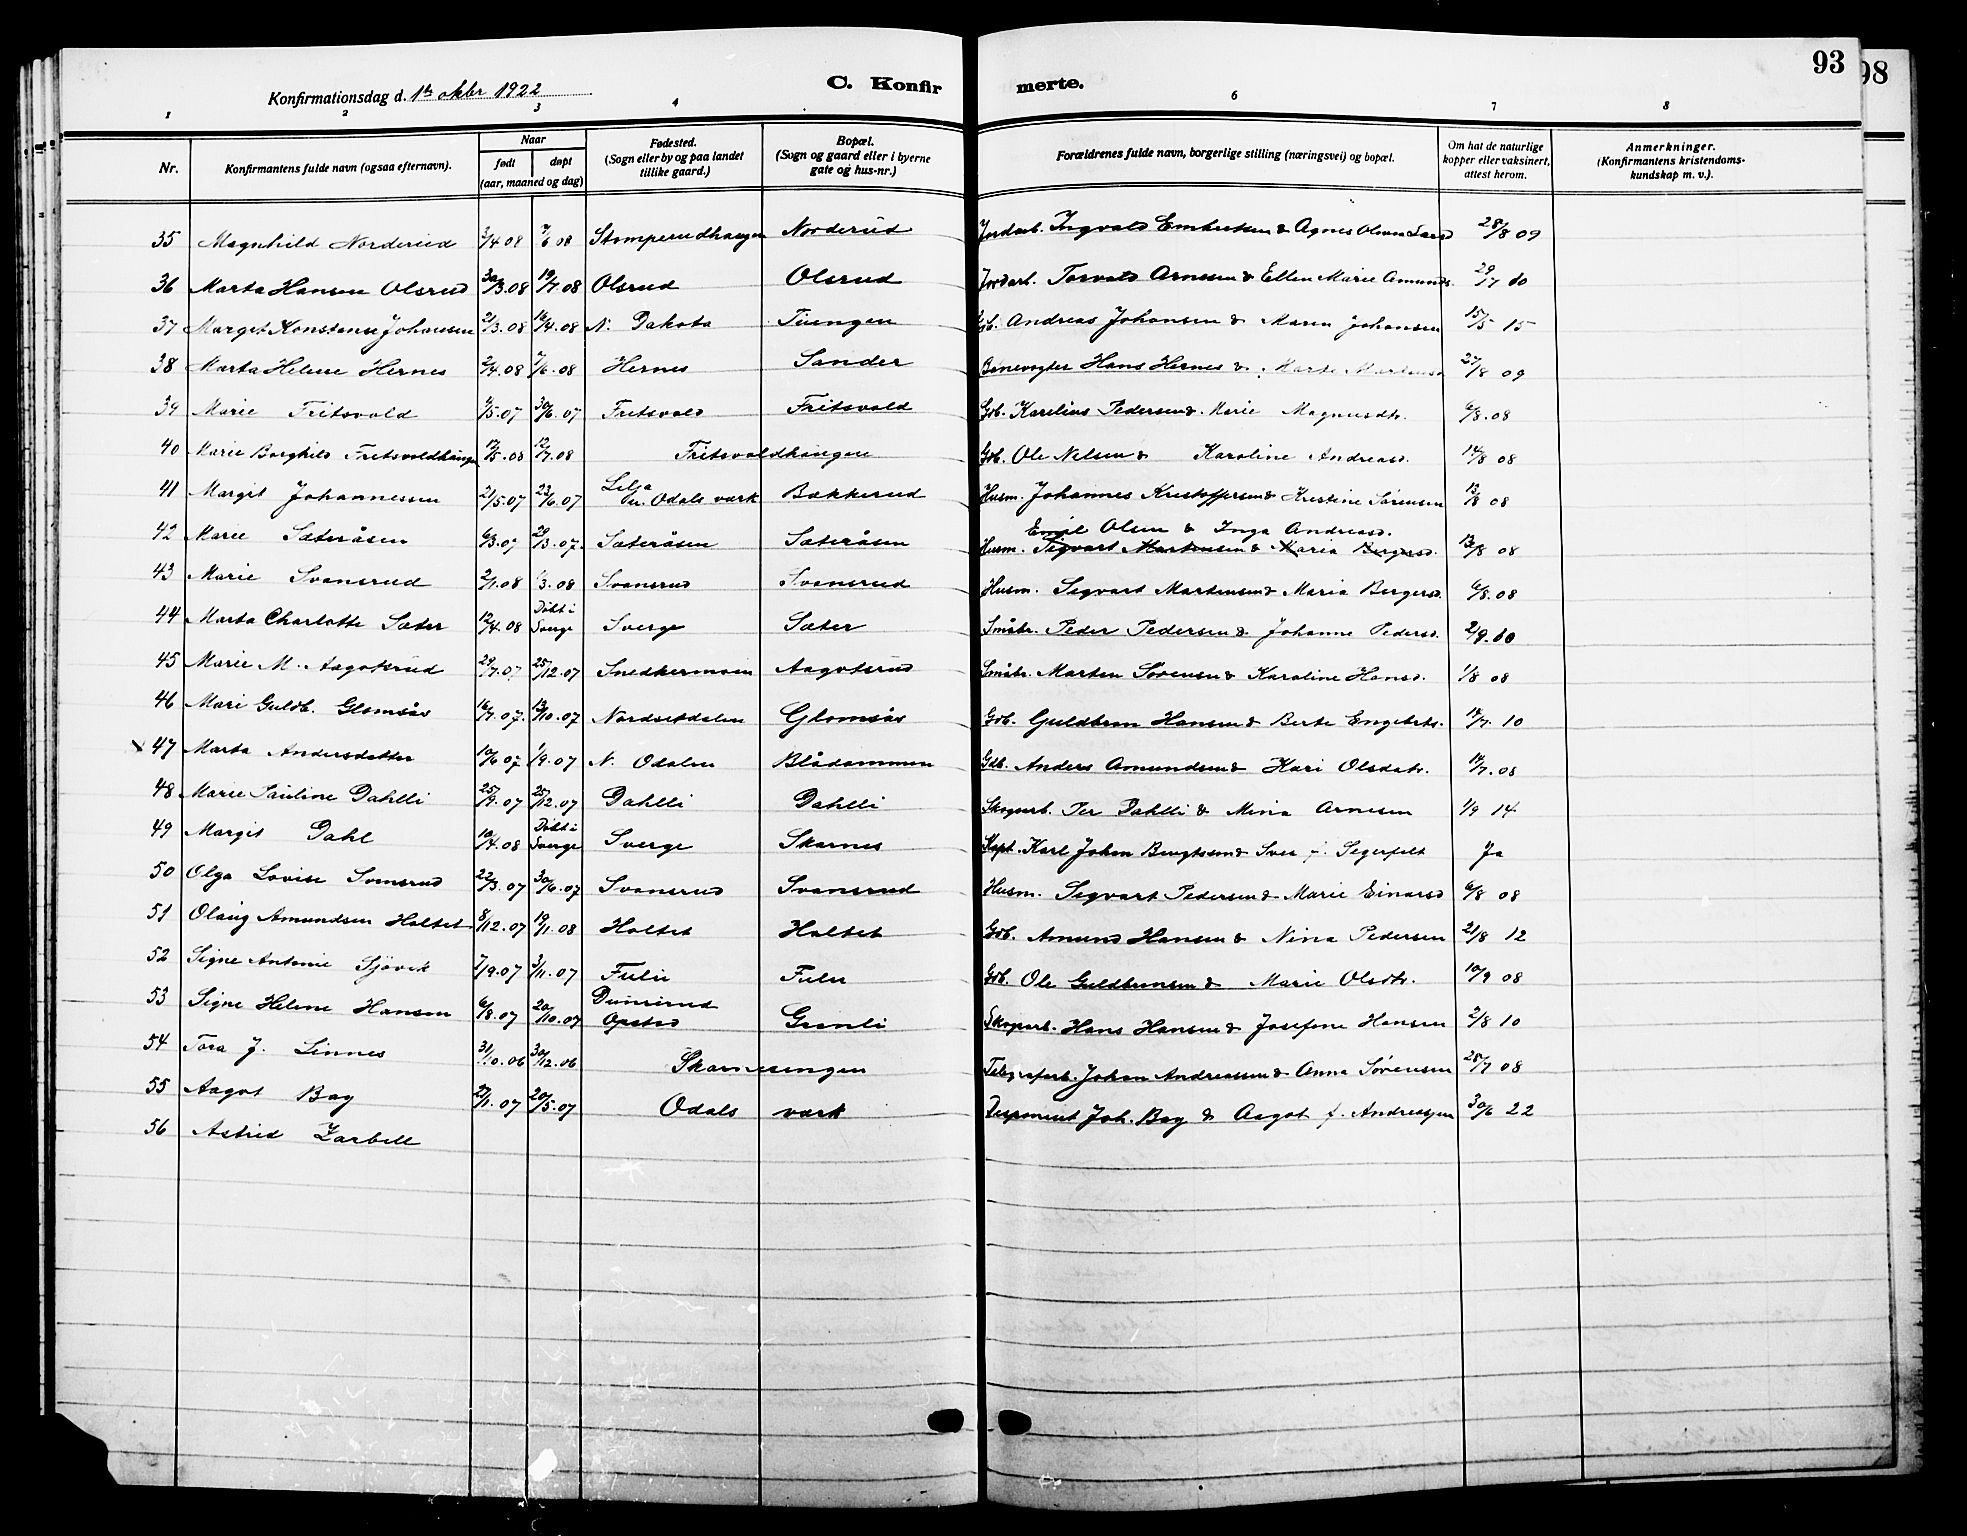 93
98
Konfirmationsdag d. 1ste oktbr 1922
C. Konfirmerte.
1 2 3 4 6 7 8
Nr. Konfirmantens fulde navn (ogsaa efternavn). Naar født døpt (aar, maaned og dag) Fødested. (Sogn eller by og paa landet tillike gaard.) Bopæl. (Sogn og gaard eller i byerne gate og hus-nr.) Forældrenes fulde navn, borgerlige stilling (næringsvei) og bopæl. Om hat de naturlige kopper eller vaksinert, attest herom. Anmerkninger. (Konfirmantens kristendoms-kundskap m. v.).
35 Magnhild Norderud 3/4 08 7/6 08 Stomperudhaugen Norderud Jordarb. Ingvald Embretsen & Agnes Olsen 28/8 09
36 Marta Hansen Olsrud 30/3.08 19/7.08 Olsrud Olsrud Jordarb. Torvald Arnesen & Ellen Marie Amunds. 29/7 10
37 Margit Konstanse Johansen 21/3.08 16/4.08 N. Dakota Tiungen Andreas Johansen & Maren Johansen 15/5 15
38 Marta Helene Hernes 2/4.08 7/6.08 Hernes Sander Banevogter Hans Hernes & Marte 27/8 09
39 Marie Fritsvold 9/5.07 30/6.07 Fritsvold Fritsvold Gdb. Karelius Pedersen & Marie Magnusdtr. 6/8.08
40 Marie Borghild Fritsvoldhaugen 12/5.08 12/7.08 Fritsvoldhaugen Gdb. Ole Nilsen & Karoline Andreasd. 14/8 08
41 Margit Johannessen 21/5.07 23/6.07 Lilja Odals værk Bækkerud Husm. Johannes Kristoffersen & Kristine Sørensen 13/8 08
42 Marie Sæteråsen 6/3.07 28/3.07. Sæteråsen Sæteråsen Emil Olsen & Inga Andreasd.
Husm. Sigvart Martinsen & Maria Bergersd. 13/8 08
43 Marie Svansrud 2/1.08 1/3.08 Svansrud Svansrud Husm. Sigvart Martinsen & Maria Bergersd. 6/8.08
44 Marta Charlotte Sæter 12/4.08 Døbt i Sverge Sverge Sæter Småbr. Peder Pedersen & Johanne Pedersd. 2/9.10
45 Marie M. Aagotsrud 29/7.07 25/12.07 Snedkermoen Aagotsrud Småbr. Marten Sørensen & Karoline Hansd. 1/8 08
46 Mari Guldb. Glomsås 16/7.07. 13/10.07 Nordsetdalen Glomsås Gdb. Guldbran Hansen & Berte Engebrets. 17/7.10
47 Marta Andersdatter 10/6 07 1/9.07 N. Odalen Blådammen Gdb. Anders Amundsen & Kari Olsdatr. 14/7.08
48 Marie Pauline Dahlli 25/9.07 25/12.07 Dahlli Dahlli Skogarb. Per Dahlli & Mina Arnesen 1/9 14
49 Margit Dahl 10/4.08 Døbt i Sverge Sverge Skarnes Kapt. Karl Johan Bengtsen & Svea f. Segerfelt Ja
50 Olga Lovise Svansrud 22/3.07 30/6.07 Svansrud Svansrud Husm. Sigvart Pedersen & Marie Einarsd 6/8 08
51 Olaug Amundsen Holtet 8/12.07 19/1.08 Holtet Holtet Gdb. Amund Hansen & Nina Pedersen 21/8 12
52 Signe Antonie Sjøvik 7/9.07 3/11.07 Fulu Fulu Gdb. Ole Guldbransen & Marie Olsdtr. 10/9 08
53 Signe Helene Hansen 6/8.07 20/10.07 Opstad Granli Skogarb. Hans Hansen & Josefine Hansen 2/8 10
54 Tora J. Linnes 31/10.06 30/12.06 Skarnesengen Telegrafarb. Johan Andreassen & Anna Sørensen 28/7 08
55 Aagot Bay 27/1.07 20/5.07 Odals værk Disponent Joh. Bay & Aagot f. Andreassen 30/6 22
56 Astrid Zarbell